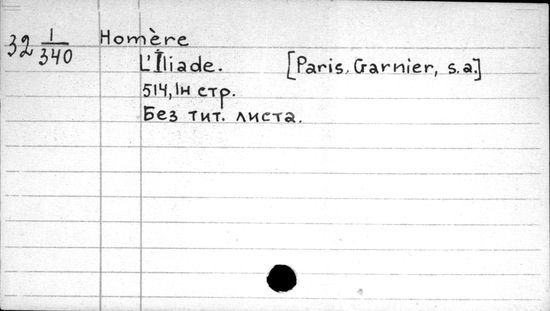 32 1/340 Homère
L'Iliade. [Paris, Garnier, s.a.]
514, 1н стр.
Без тит. листа.